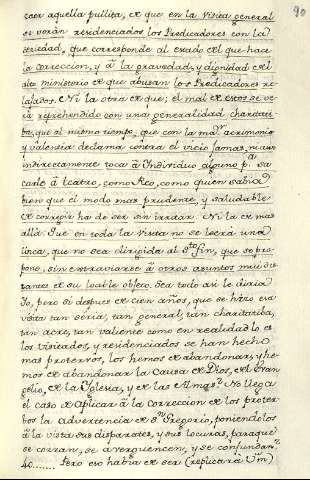 90
caer aquella pullita, de que en la Visita general
se verán residenciados los Predicadores con la
seriedad, que corresponde al estado de el que hace
la correccion, y à la gravedad, y dignidad de el
alto ministerio de que abusan los Predicadores re-
lajados. Ni la otra de que, el mal de estos se ve-
rà reprehendido con una generalidad charitati-
ba, que al mismo tiempo, que con la maor acrimonia
y valentia declama contra el vicio, jamas, ni aun
indirectamente toca à Individuo alguno pa sa-
carle à teatro, como Reo, como quien sabia
bien que el modo mas prudente, y saludable
de corregir ha de ser sin irritar. Ni la de mas
allà. Que en toda la Visita no se leerà una
linea, que no sea dirigida al sto fin, que se pro-
pone, sin extraviarse à otros asuntos mui dis-
tantes de su loable objeto. Sea todo asi le diria
Yo, pero si despues de cien años, que se hizo esa
visita tan seria, tan general, tan charitatiba,
tan acre, tan valiente como en realidad lo es
los visitados, y residenciados se han hecho
mas protervos, los hemos de abandonar, y he-
mos de abandonar la Causa de Dios, de el Evan-
gelio, de la Iglesia, y de las Almas? No llega
el caso de aplicar à la correccion de los proter-
bos la advertencia de Sn Gregorio, poniendolos
à la vista sus disparates, y sus locuras, para que
se corran, se averguencen, y se confundan?
40...... Pero eso habia de ser (replicarà Vm)